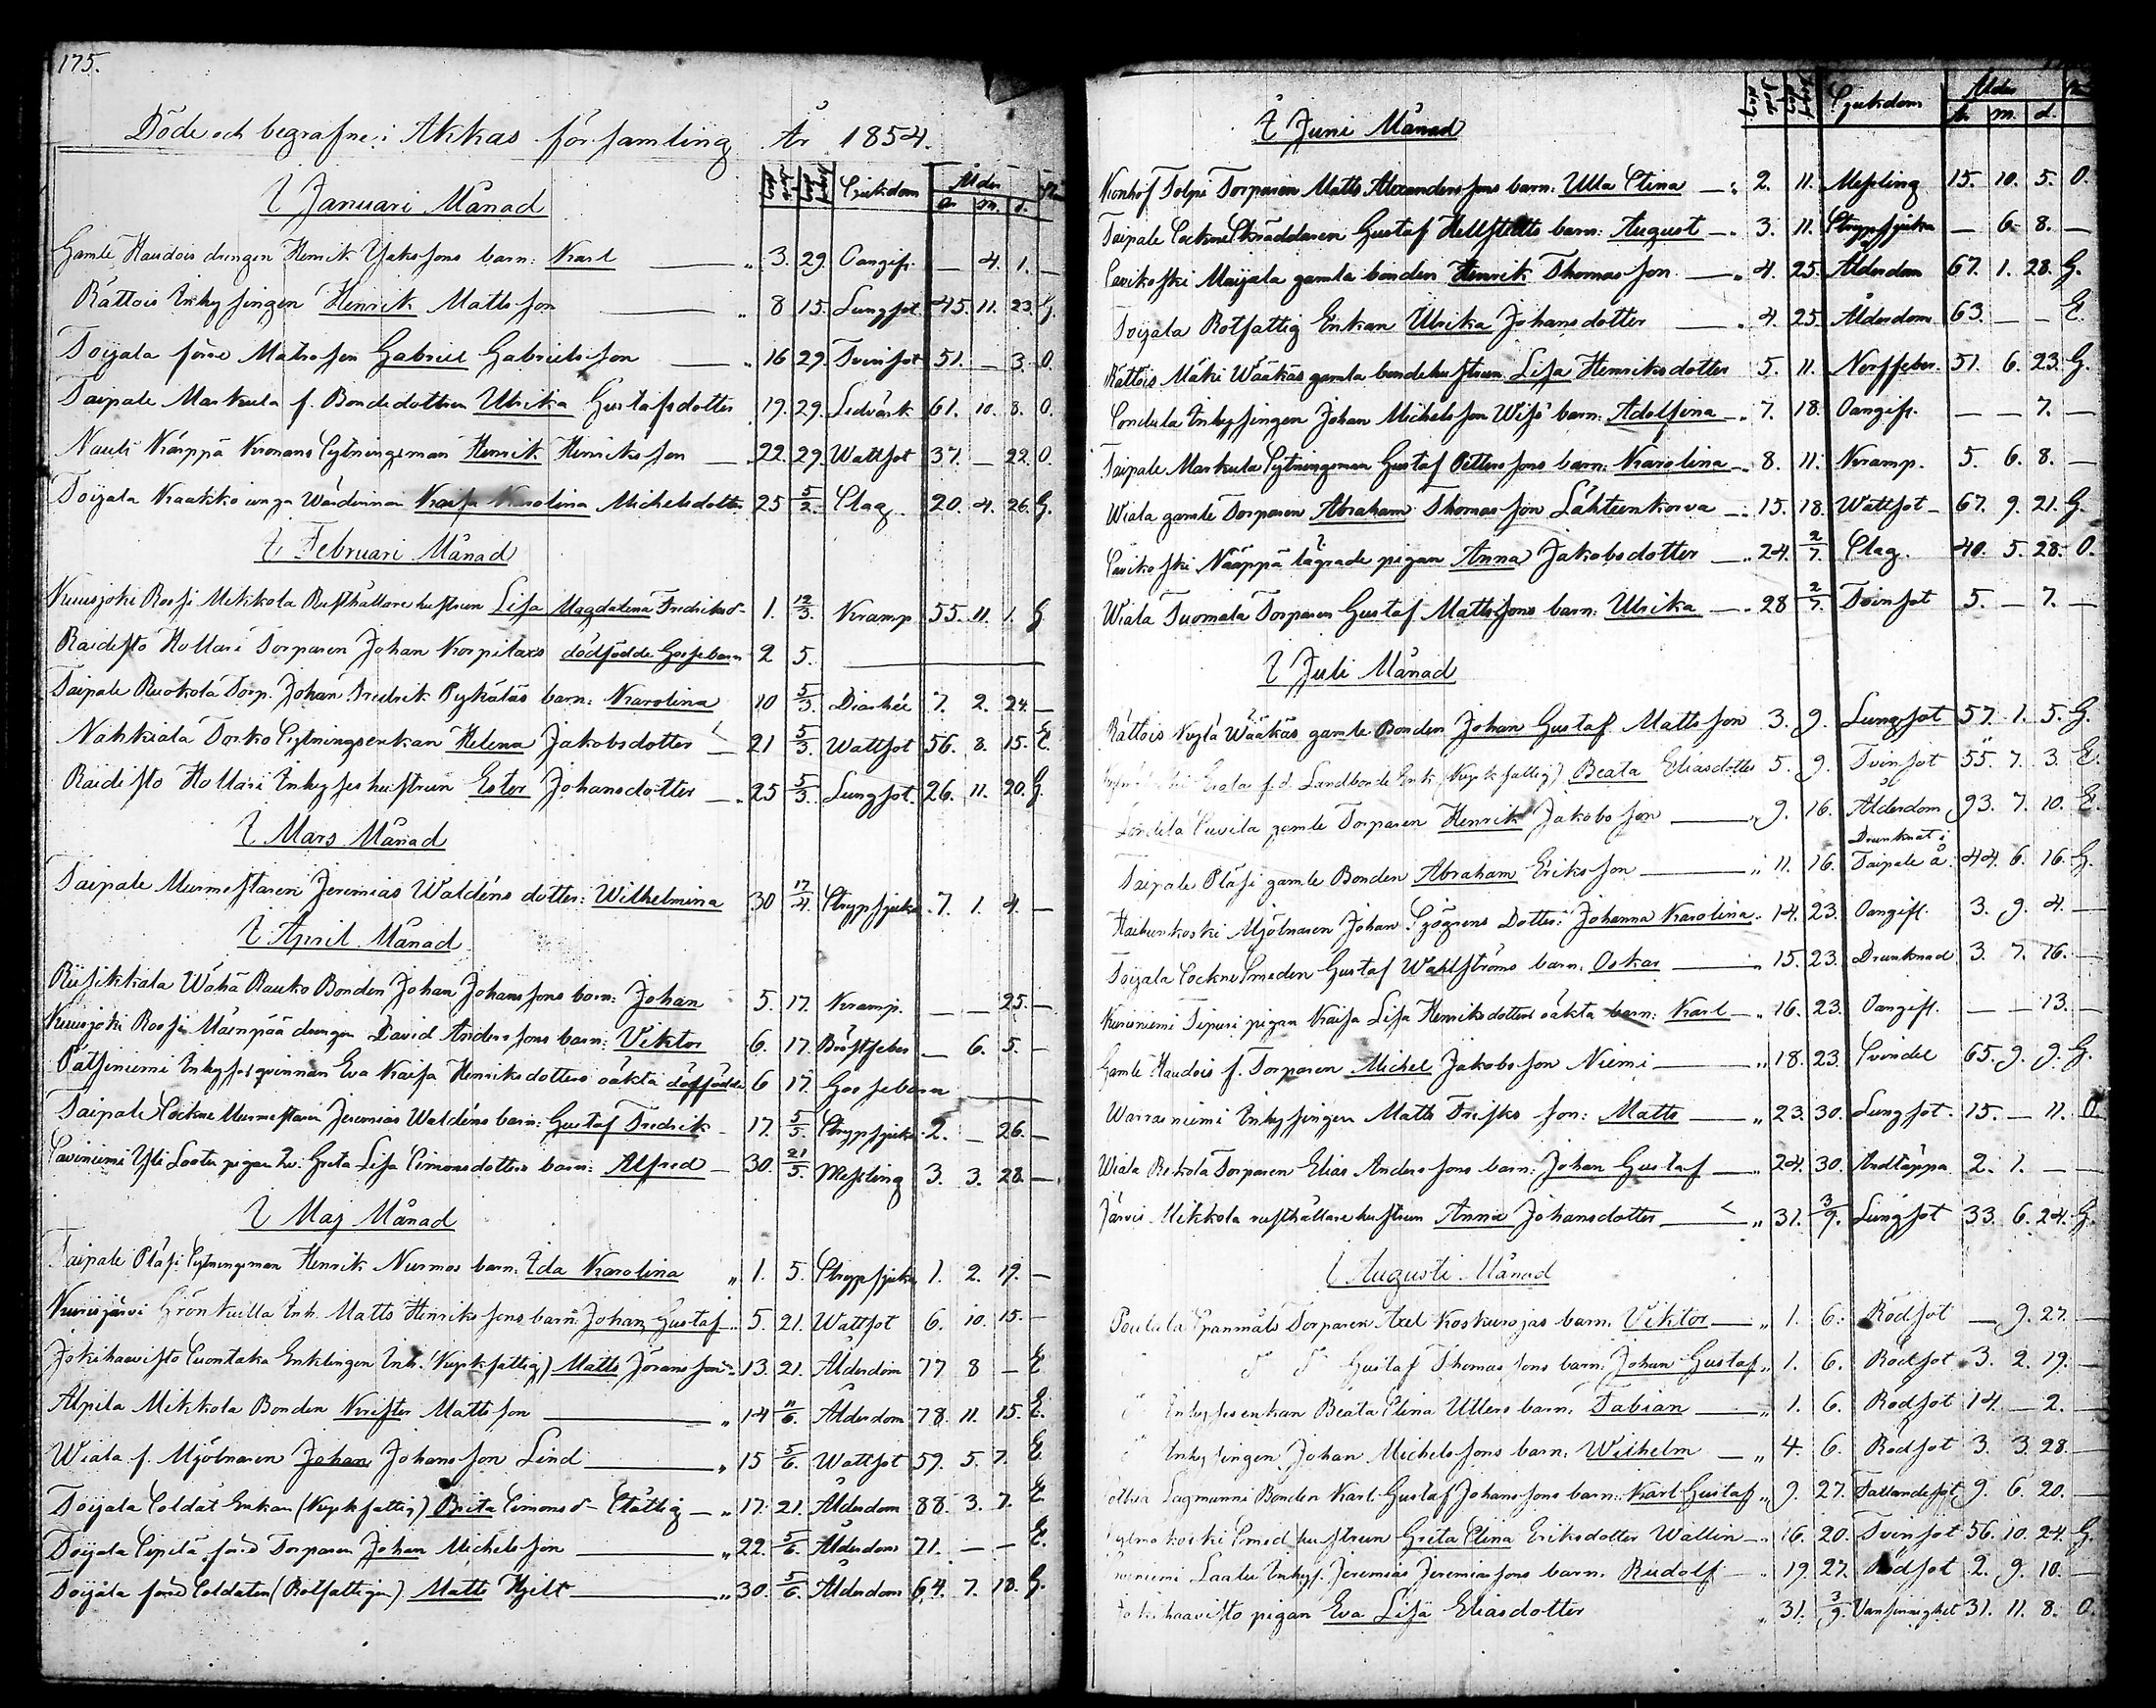 175.
Döde och begrafne i Akkas församling År 1854.
Sjukdom Ålder
år m. d.
I Januari Månad
Gamle Haudois drengen Henrik Jakssons barn: Karl 3. 29. Oangif. — 4. 1. —
Rättois Inhysingen Henrik Mattsson 8 15. Lungsot 45. 11. 23. G.
Toijala förre Matrosen Gabriel Gabrielsson 16 29. Tvinsot 51. — 3. O.
Taipale Markula f. Bondedottren Ulrika Gustafsdotter 19. 29. Ledvärk 61. 10. 8. O.
Nauli Kärppä Kronans Sytningsman Henrik Henriksson 22. 29. Wattsot 37. — 22. O.
Toijala Kraakko unga Wärdinnan Kaisa Karolina Michelsdotter 25 5/2. Slag 20. 4. 26. G.
I Februari Månad
Kurisjoki Rossi Mikkola Rusthållarehustrun Lisa Magdalena Fredriksdr 1. 12/3. Kramp 55. 11. 1. G
Raidisto Hollari Torparen Johan Korpilaxs dödfödde Gossebarn 2 5.
Taipale Ruokola Torp. Johan Fredrik Pykäläs barn: Karolina 10 5/3. Diarhée 7. 2. 24. —
Nahkiala Torko Sytningsenkan Helena Jakobsdotter 21 5/3. Wattsot 56. 8. 15. E.
Raidisto Hollari Inhyseshustrun Ester Johansdotter 25 5/3. Lungsot. 26. 11. 20. G.
I Mars Månad
Taipale Murmestaren Jeremias Waldéns dotter: Wilhelmina 30 17/4. Strypsjuka 7. 1. 4. —
I April Månad
Riisikkala Wähä Rauko Bonden Johan Johanssons barn: Johan 5. 17. Kramp. — — 25. —
Kurisjoki Rossi Mäenpää drengen David Anderssons barn: Viktor 6. 17. Bröstfeber — 6. 5. —
Pätsiniemi Inhysesqvinnan Eva Kaisa Henriksdotters oäkta dödfödde 6 17. Gossebarn
Taipale Sockne Murmestaren Jeremias Waldéns barn: Gustaf Fredrik 17. 5/5. Strypsjuka 2. — 26. —
Saviniemi Yli Looten pigan Greta Lisa Simonsdotters barn: Alfred 30. 21/5. Messling 3. 3. 28. —
I Maj Månad
Taipale Pläsi Sytningsman Henrik Nurmos barn: Ida Karolina 1. 5. Strypsjuka 1. 2. 19. —
Kurisjärvi Grönkulla Inh. Matts Henrikssons barn: Johan Gustaf 5. 21. Wattsot 6. 10. 15. —
Jokihaavisto Suontaka Enklingen Inh. (Kyrkfattig) Matts Jöransson 13. 21. Ålderdom 77 8 — E
Alpila Mikkola Bonden Krister Mattsson 14 11/6. Ålderdom 78. 11. 15. E.
Wiala f. Mjölnaren Johan Johansson Lind 15 5/6. Wattsot 59. 5. 7. E
Toijala Soldat Enkan (Kyrkfattig) Brita Simonsdr Ståltig 17. 21. Ålderdom 88. 3. 7. E
Toijala Sipilä förre Torparen Johan Michelsson 22. 5/6. Ålderdom 71. — — E.
Toijala förre Soldaten (Rotfattigen) Matts Hjelt 30. 5/6. Ålderdom 64. 7. 18. G.
Sjukdom Ålder
år m. d.
I Juni Månad
Konhof Tolpi Torparen Matts Alexanderssons barn: Ulla Stina 2. 11. Messling 15. 10. 5. O.
Taipale Sockne Skräddaren Gustaf Hellstedts barn: August 3. 11. Strypsjuka — 6. 8. —
Savikoski Maijala gamla bonden Henrik Thomasson 4. 25. Ålderdom 67. 1. 28. G.
Toijala Rotfattig Enkan Ulrika Johansdotter 4. 25. Ålderdom 63. — — E.
Rättois Mäki Wääkäs gamla bondehustrun Lisa Henriksdotter 5. 11. Nerffeber. 51. 6. 23. G.
Sondula Inhysingen Johan Michelsson Wiss' barn: Adolfina 7. 18. Oangif. — — 7. —
Taipale Markula Sytningsman Gustaf Petterssons barn: Karolina 8. 11. Kramp. 5. 6. 8. —
Wiala gamle Torparen Abraham Thomasson Lähteenkorva 15. 18. Wattsot 67. 9. 21. G.
Savikoski Nääppä lägrade pigan Anna Jakobsdotter 24. 2/7. Slag. 40. 5. 28. O.
Wiala Tuomala Torparen Gustaf Mattssons barn: Ulrika 28 2/7. Tvinsot 5. — 7. —
I Juli Månad
Rättois Kylä Wääkäs gamle Bonden Johan Gustaf Mattsson 3. 9. Lungsot 57. 1. 5. G.
Erala f.d. Landbonde Enk. (Kyrkfattig) Beata Eliasdotter 5. 9. Tvinsot 55. 7. 3. E.
gamle Torparen Henrik Jakobsson 9. 16. Ålderdom 93. 7. 10. E.
Taipale Pläsi gamle Bonden Abraham Eriksson 11. 16. Drunknat i Taipale å. 44. 6. 16. G.
Haihunkoski Mjölnaren Johan Sjögrens Dotter: Johanna Karolina 14. 23. Oangif. 3. 9. 4. —
Toijala Sockne Smeden Gustaf Wahlströms barn. Oskar 15. 23. Drunknad 3. 7. 16. —
Kurisniemi Sipuri pigan Kaisa Lisa Henriksdotters oäkta barn: Karl 16. 23. Oangif. — — 13. —
Gamle Haudois f. Torparen Michel Jakobsson Niemi 18. 23. Svindel 65. 9. 9. G.
Warrasniemi Inhysingen Matts Trisks son: Matts 23. 30. Lungsot. 15. — 11. O.
Wiala Rekola Torparen Elias Anderssons barn: Johan Gustaf 24. 30. Andtäppa 2. 1. — —
Järvis Mikkola rusthållarehustrun Anna Johansdotter 31. 3/9. Lungsot 33. 6. 24. G.
I Augusti Månad
Poulala Spanmäls Torparen Axel Koskuesjas barn: Viktor 1. 6. Rödsot — 9. 27. —
Gustaf Thomassons barn: Johan Gustaf 1. 6. Rödsot 3. 2. 19. —
Inhysesenkan Beata Stina Utters barn: Fabian 1. 6. Rödsot 14. — 2. —
Inhysingen Johan Michelssons barn: Wilhelm 4. 6. Rödsot 3. 3. 28. —
Lagmanni Bonden Karl Gustaf Johanssons barn: Karl Gustaf 9. 27. Fallandesot 9. 6. 20. —
Smedhustrun Greta Stina Eriksdotter Wallin 16. 20. Tvinsot 56. 10. 24. G.
Laalu Inhys. Jeremias Jeremiassons barn. Rudolf 19. 27. Rödsot 2. 9. 10. —
Jokihaavisto pigan Eva Lisa Eliasdotter 31. 3/9. Vansinnighet 31. 11. 8. O.